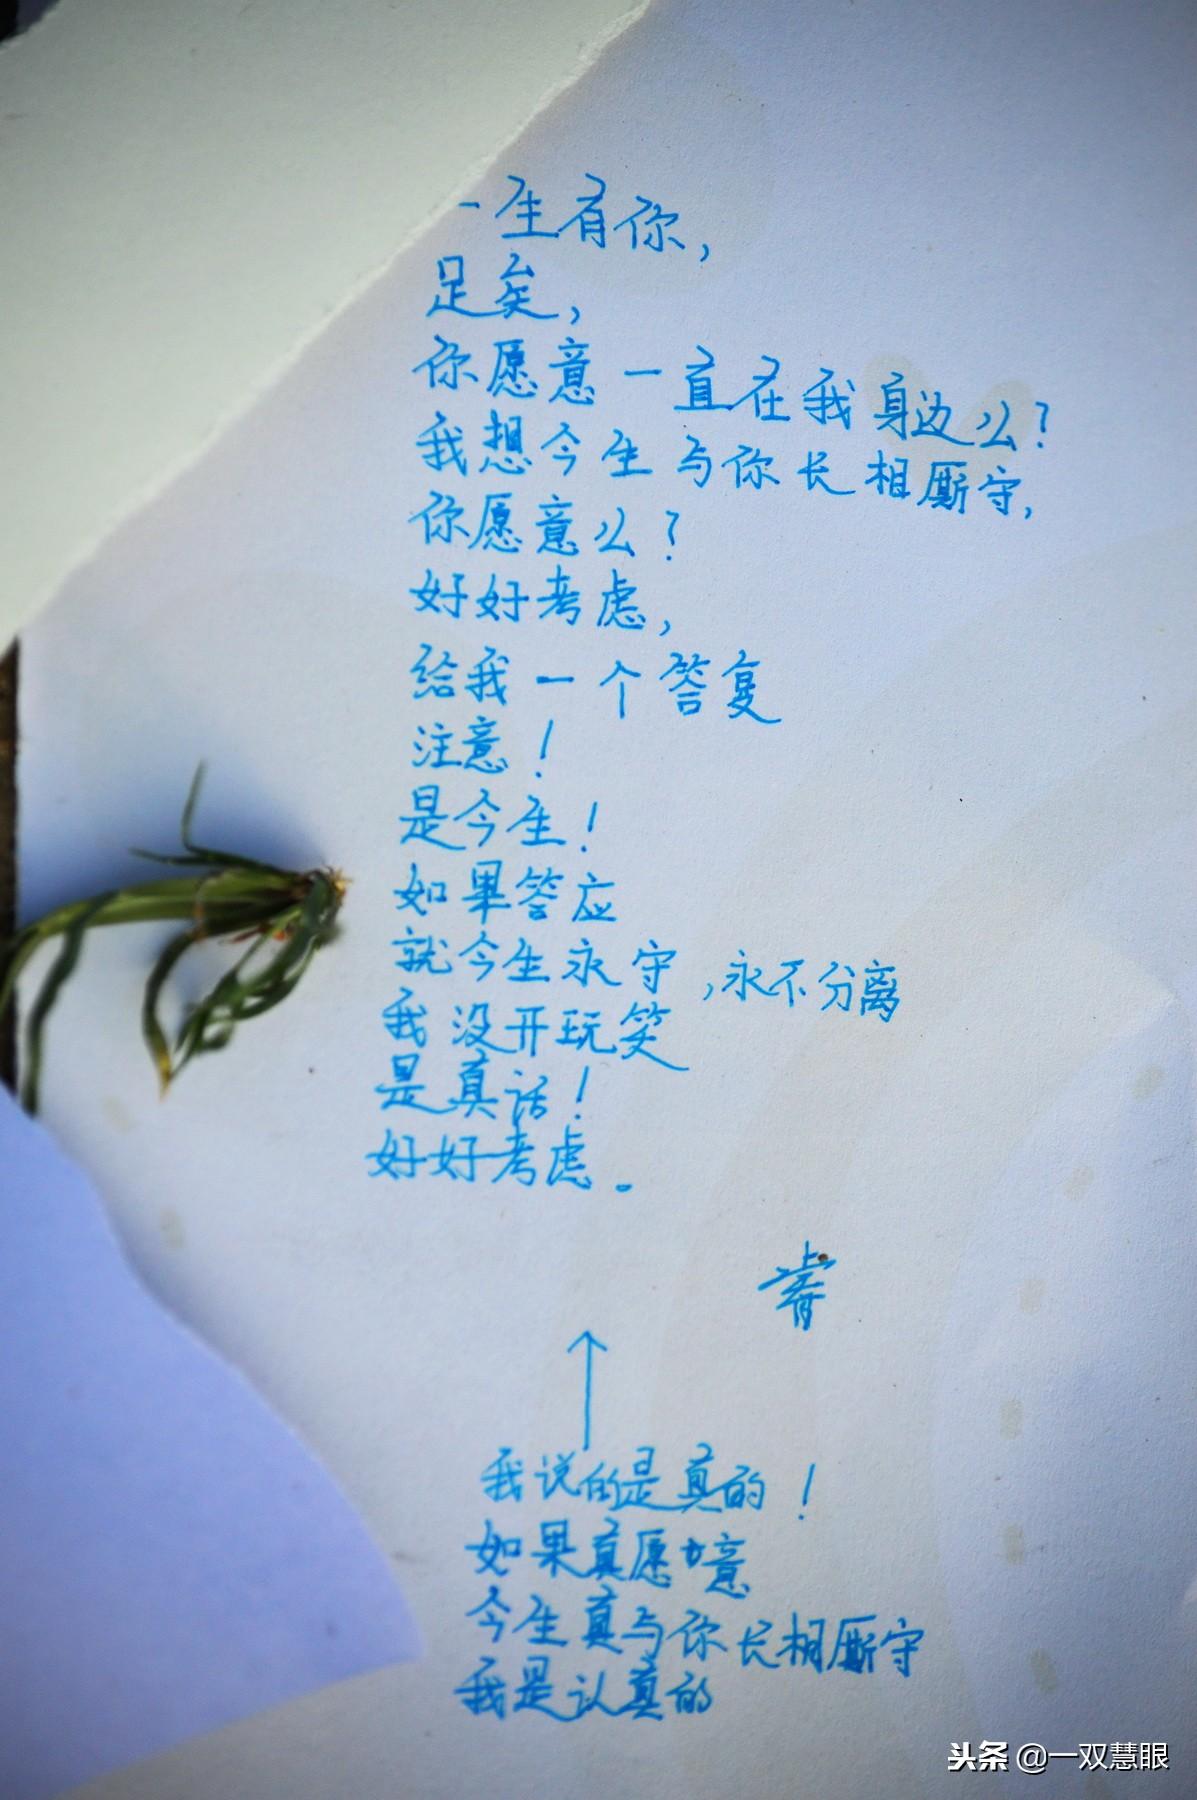 一生有你，
足矣，
你愿意一直在我身边么？
我想今生与你长相厮守，
你愿意么？
好好考虑，
给我一个答复
注意！
是今生！
如果答应
就今生永守，永不分离
我没开玩笑
是真话！
好好考虑。
我说的是真的！
如果真愿意
今生真与你长相厮守
我是认真的
头条 @一双慧眼